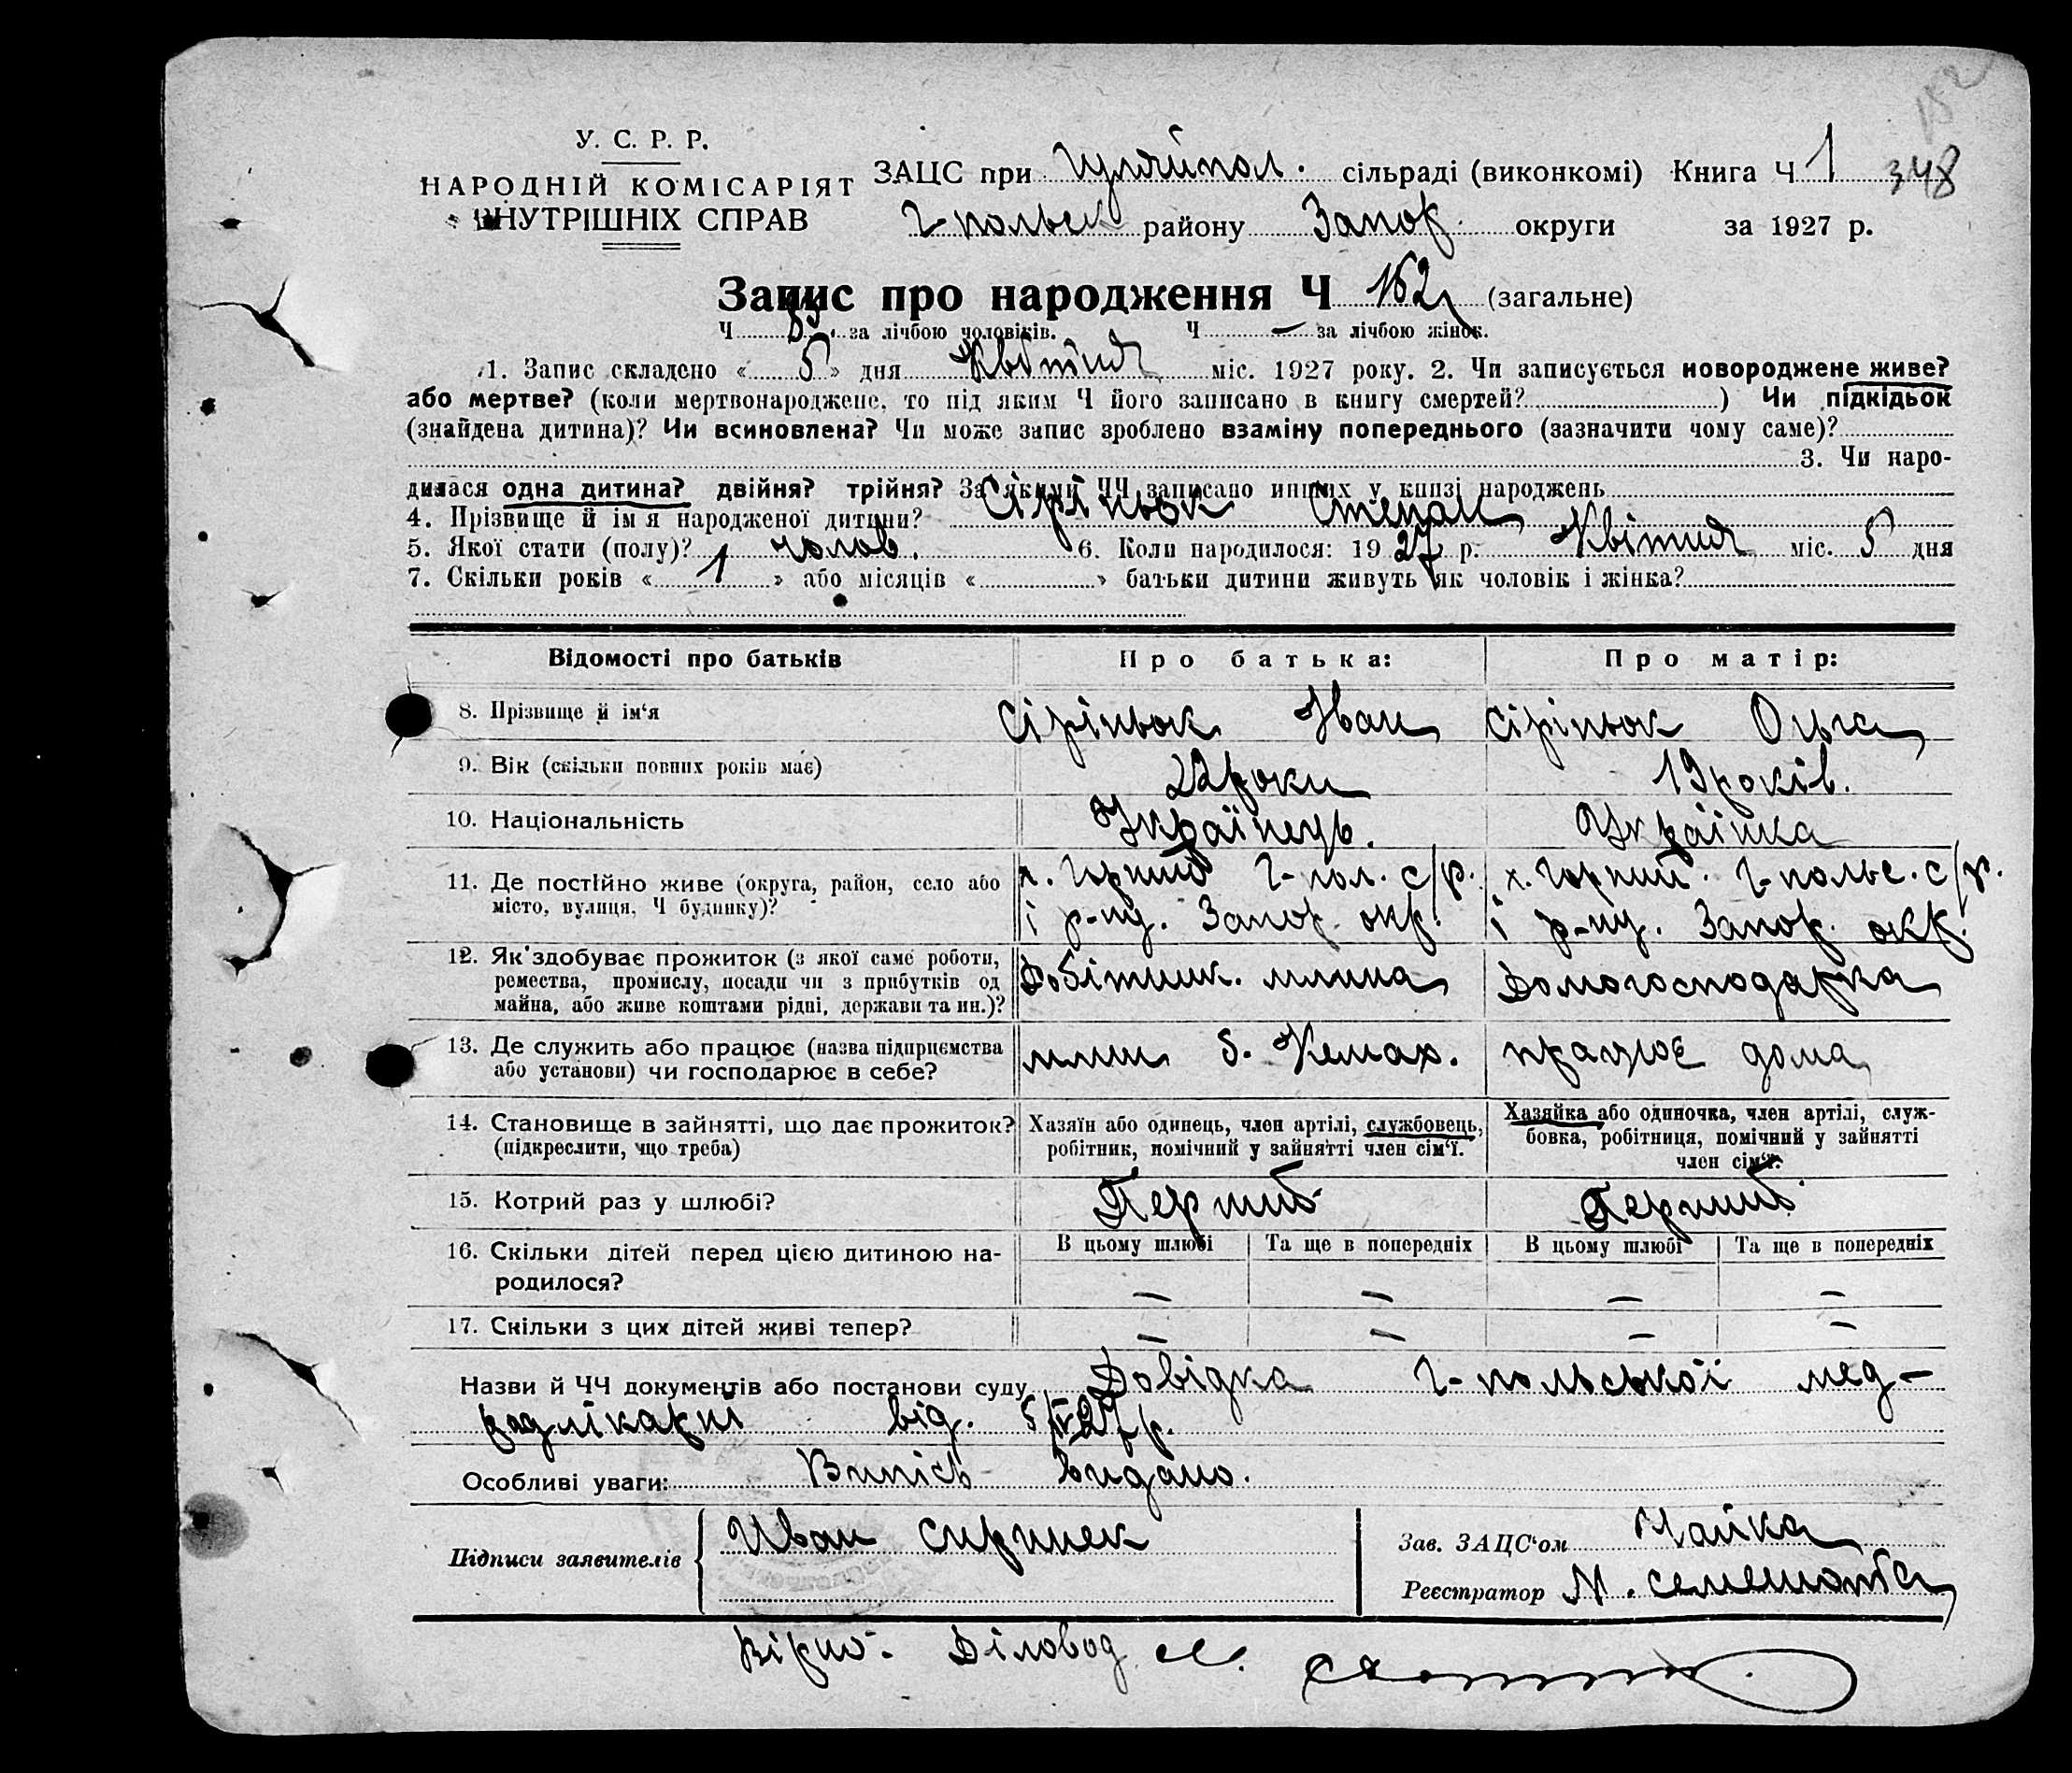 152
У. С. Р. Р.
НАРОДНІЙ КОМІСАРІЯТ
ВНУТРІШНІХ СПРАВ
ЗАЦС при Гуляйпол. сільраді (виконкомі) Книга Ч 1 348
Г-польськ району Запор. округи за 1927 р.
Запис про народження Ч 152 (загальне)
Ч за лічбою чоловіків. Ч — за лічбою жінок.
1. Запис складено « 5 » дня Квітня міс. 1927 року. 2. Чи записується новороджене живе?
або мертве? (коли мертвонароджене, то під яким Ч його записано в книгу смертей? ) Чи підкідьок
(знайдена дитина)? Чи всиновлена? Чи може запис зроблено взаміну попереднього (зазначити чому саме)?
3. Чи наро-
дилася одна дитина? двійня? трійня? За якими ЧЧ записано инших у книзі народжень
4. Прізвище й ім'я народженої дитини? Сіріньок Степан
5. Якої стати (полу)? чолов. 6. Коли народилося: 1927 р. Квітня міс. 5 дня
7. Скільки років « 1 » або місяців « » батьки дитини живуть як чоловік і жінка?
Відомості про батьків Про батька: Про матір:
8. Прізвище й ім'я Сіріньок Іван Сіріньок Ольга
9. Вік (скільки повних років має) 22 роки 19 років.
10. Національність Українець. Українка
11. Де постійно живе (округа, район, село або х. Горкий Г-пол. с/р. х. Горкий. Г-польс. с/р.
місто, вулиця, Ч будинку)? і р-ну. Запор. окр. і р-ну. Запор. окр.
12. Як здобуває прожиток (з якої саме роботи,
ремества, промислу, посади чи з прибутків од Робітник. млина Домогосподарка
майна, або живе коштами рідні, держави та ин.)?
13. Де служить або працює (назва підприємства млин б. Кемах. працює дома
або установи) чи господарює в себе?
14. Становище в зайнятті, що дає прожиток? Хазяїн або одинець, член артілі, службовець, Хазяйка або одиночка, член артілі, служ-
(підкреслити, що треба) робітник, помічний у зайнятті член сім'ї. бовка, робітниця, помічний у зайнятті
член сім'ї.
15. Котрий раз у шлюбі? Перший Перший
16. Скільки дітей перед цією дитиною на- В цьому шлюбі Та ще в попередніх В цьому шлюбі Та ще в попередніх
родилося? — — — —
17. Скільки з цих дітей живі тепер? — — — —
Назви й ЧЧ документів або постанови суду Довідка Г-польської мед-
радлікарні від. 5/IV 27 р.
Особливі уваги: Випісь видано.
Підписи заявителів Иван Сиринек
Зав. ЗАЦС'ом Чайка
Реєстратор М.
Вірно: Діловод